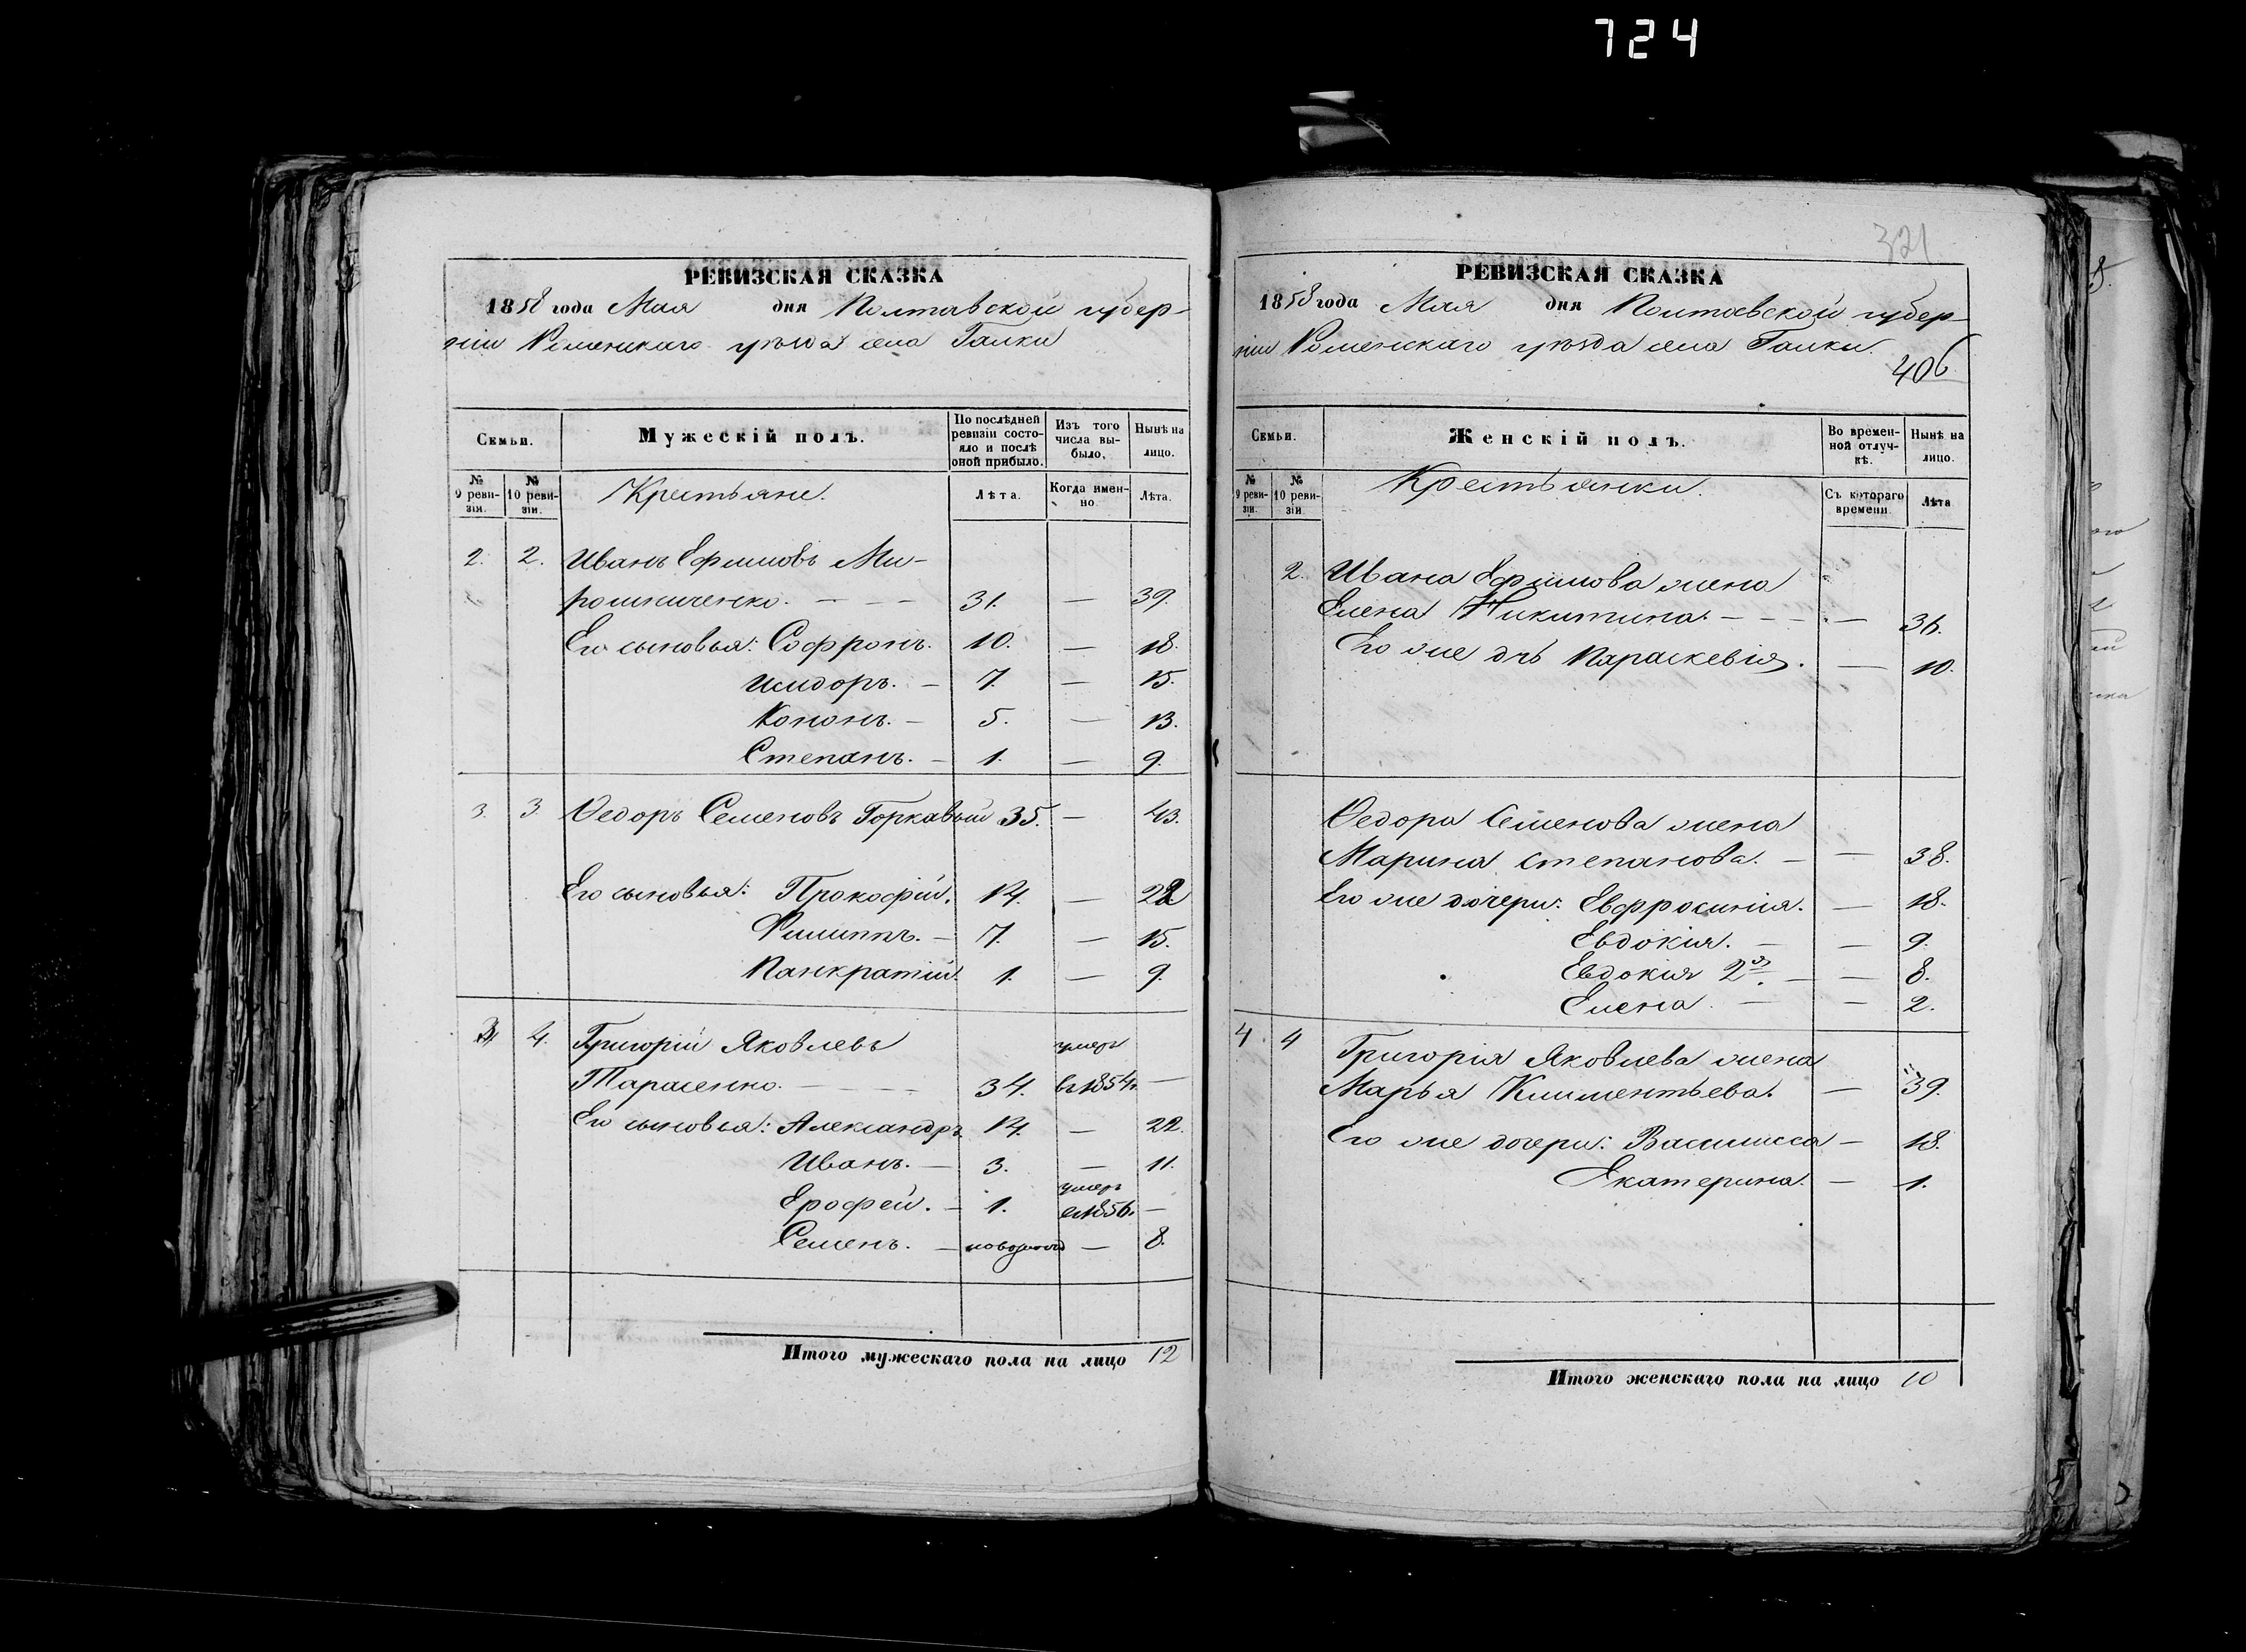 724
РЕВИЗСКАЯ СКАЗКА
1858 года Мая дня Полтавской губер-
ніи Роменскаго уѣзда села Галки
Семьи.
Мужескій полъ.
По послѣдней ревизіи состояло и послѣ оной прибыло.
Изъ того числа выбыло.
Нынѣ на лицо.
№ 9 ревизія.
№ 10 ревизіи.
Крестьяне.
Лѣта.
Когда именно
Лѣта.
2. 2. Иванъ Ефимовъ Ми-
рошниченко. — 31. — 39.
Его сыновья: Софронъ. 10. — 18.
Исидоръ. — 7. — 15.
Кононъ. — 5. — 13.
Степанъ. — 1. — 9.
3. 3. Ѳедоръ Семеновъ Горкавый 35. — 43.
Его сыновья: Прокофій. 14. — 22
Филиппъ. — 7. — 15.
Панкратій. 1. — 9.
4. Григорій Яковлевъ умеръ
Тарасенко. — 34. въ 1854г. —
Его сыновья: Александръ 14. — 22.
Иванъ. — 3. — 11.
умеръ
Ерофей. — 1. въ 1856. —
Семенъ. — новорожд — 8.
Итого мужескаго пола на лицо 12
321
РЕВИЗСКАЯ СКАЗКА
1858 года Мая дня Полтавской губер-
ніи Роменскаго уѣзда села Галки.
406
Семьи.
Женскій полъ.
Во временной отлучкѣ.
Нынѣ на лицо.
№ 9 ревизіи.
№ 10 ревизіи
Крестьянки.
Съ котораго времени
Лѣта
2. Ивана Ефимова жена
Елена Никитина. — — 36.
Его же дчь Параскевія. — 10.
Ѳедора Семенова жена
Марина Степанова. — — 38.
Его же дочери: Евфросинія. — 18.
Евдокія. — — 9.
Евдокія 2я. — — 8.
Елена. — — 2.
4. 4 Григорія Яковлева жена
Марья Климентьева. — 39.
Его же дочери: Василисса — 18.
Екатерина. — 1.
Итого женскаго пола на лицо 10